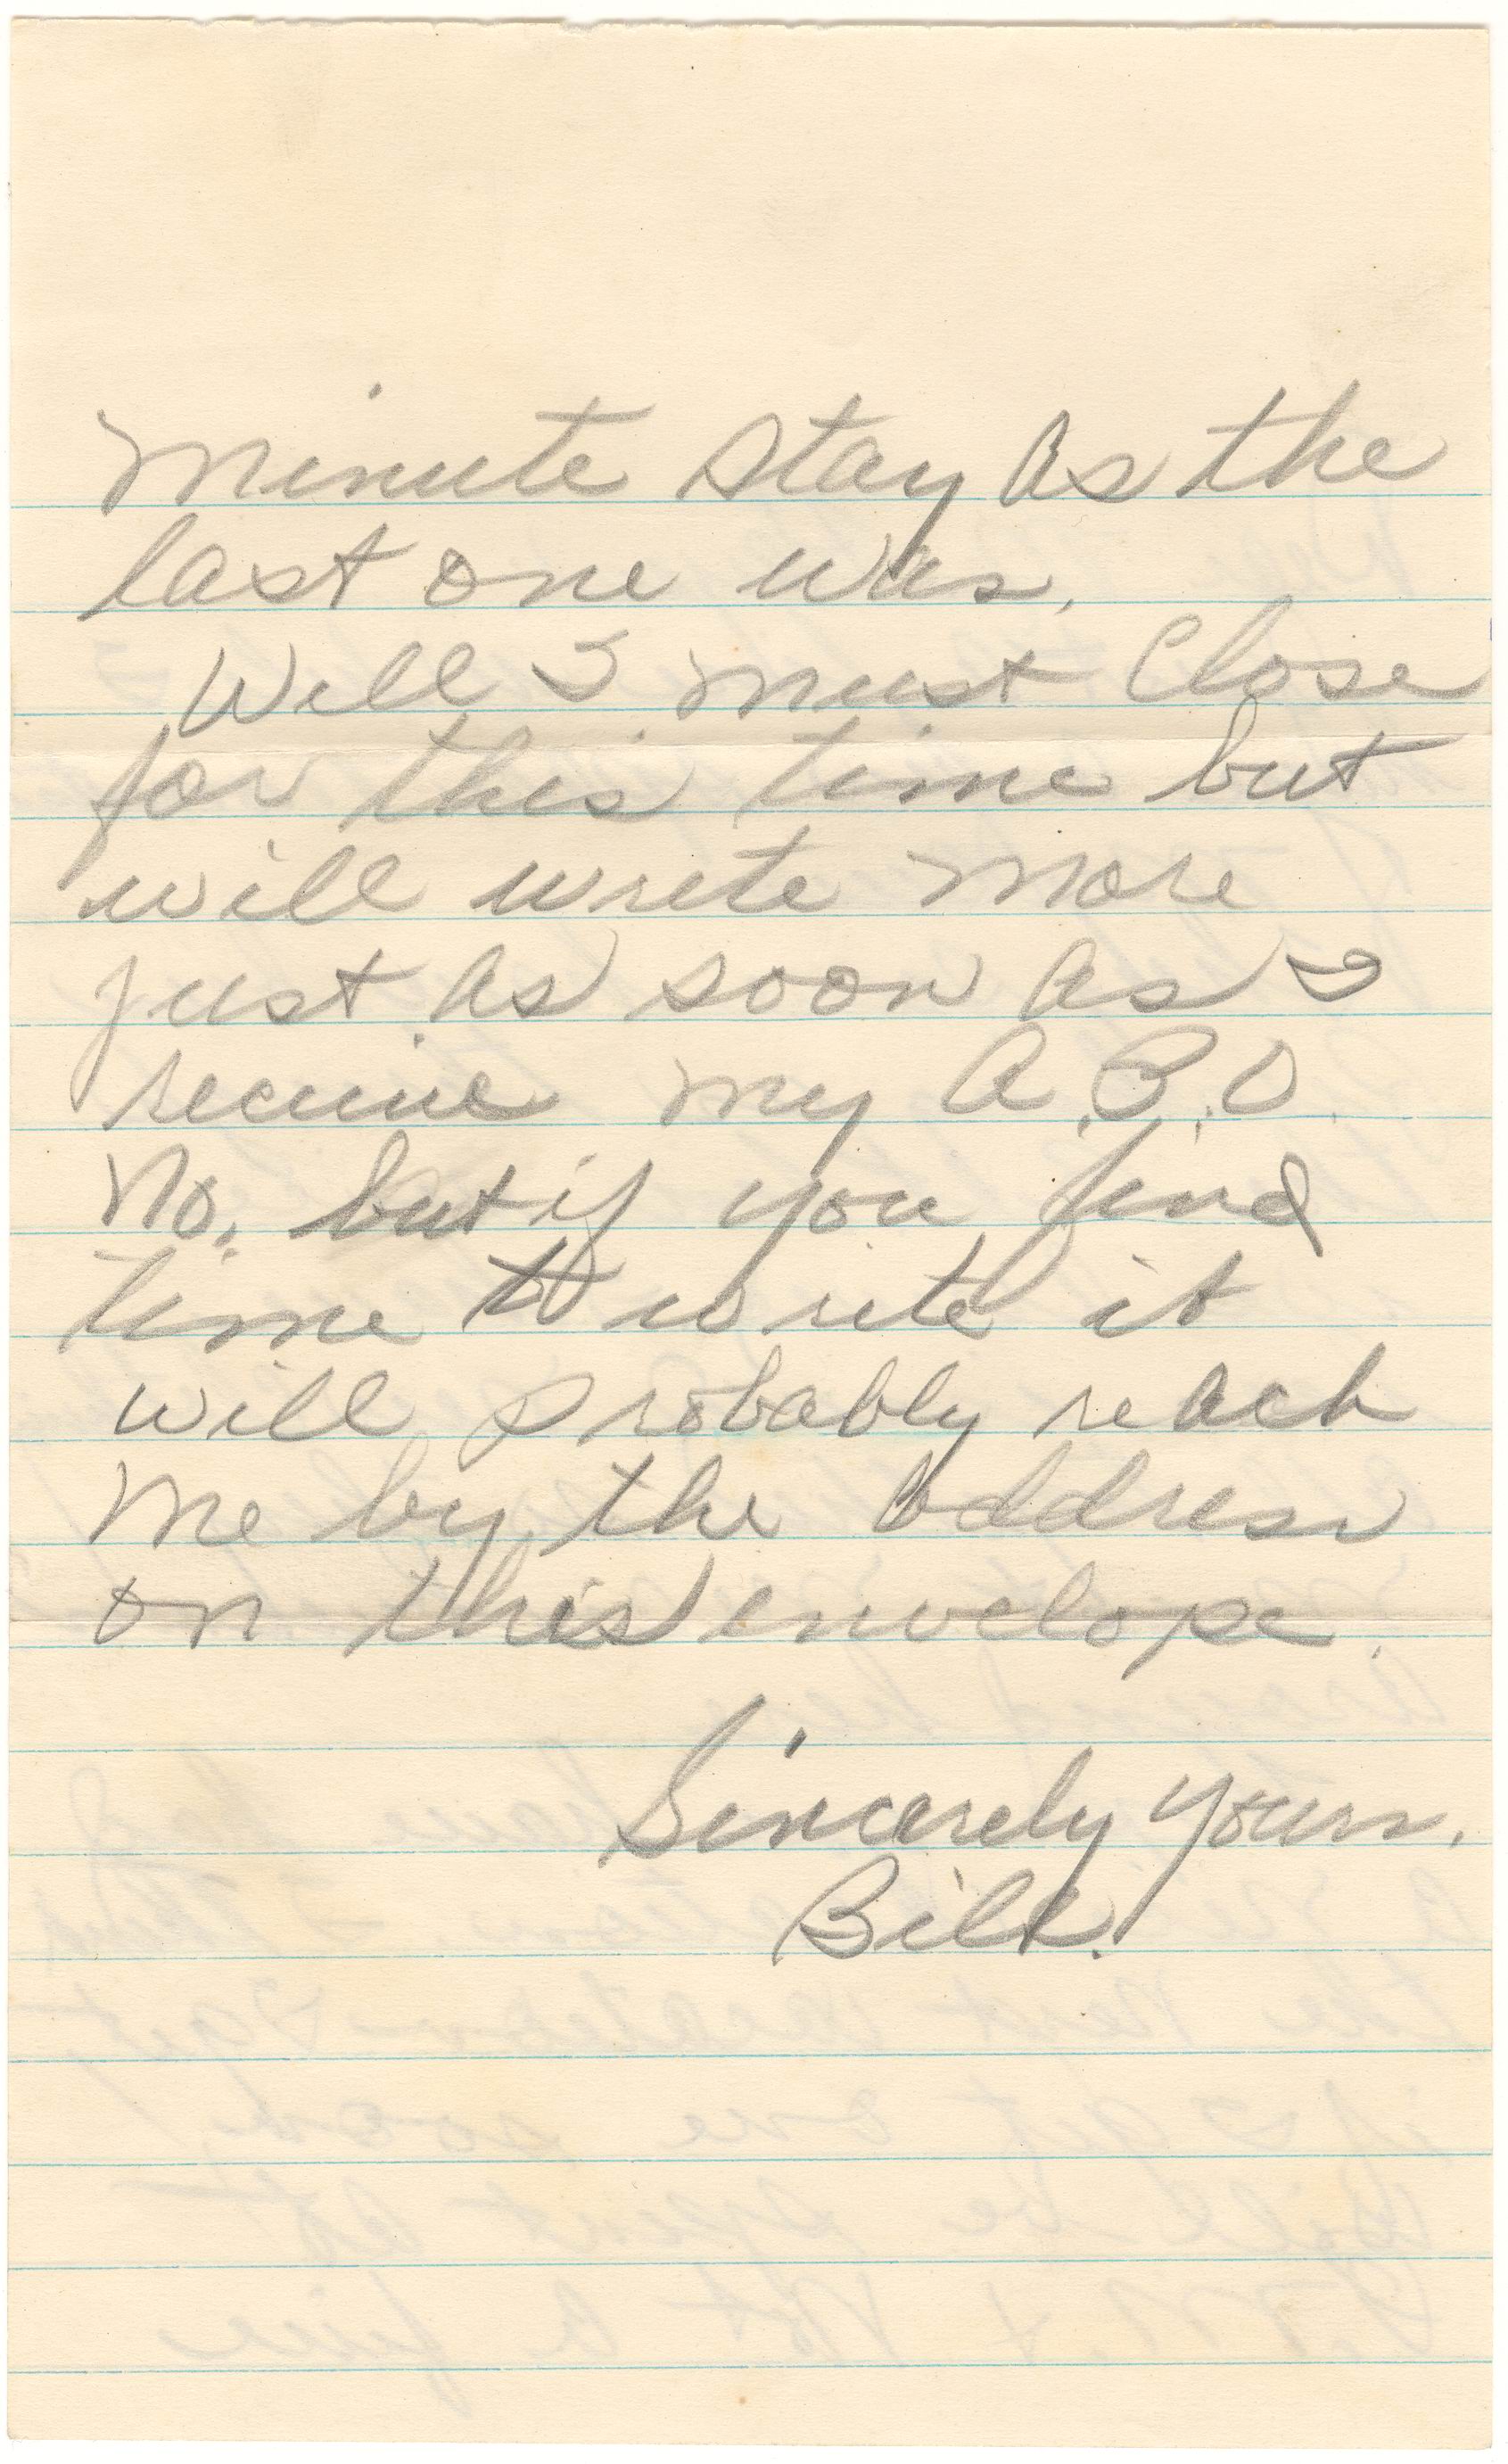 minute stay as the
last one was.
Well I must close
for this time but
will write more
just as soon as I
receive my A.P.O.
No. but if you find
time to write it
will probably reach
me by the address
on this envelope.
Sincerely yours,
Bill.